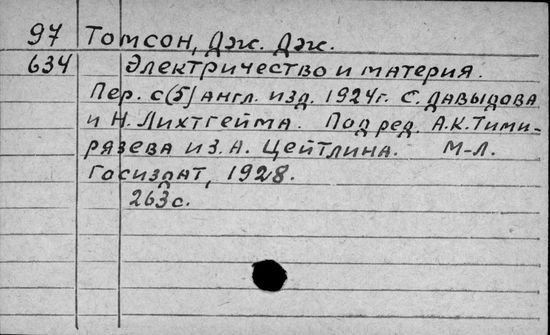 97 Томсон, Дж. Дж.
634 Электричество и материя.
Пер. с(5) англ. изд. 1924г. С. Давыдова
и Н. Лихтгейма. Под ред. А.К. Тими-
рязева и З. А. Цейтлина. М-Л.
Госиздат, 1928.
263с.